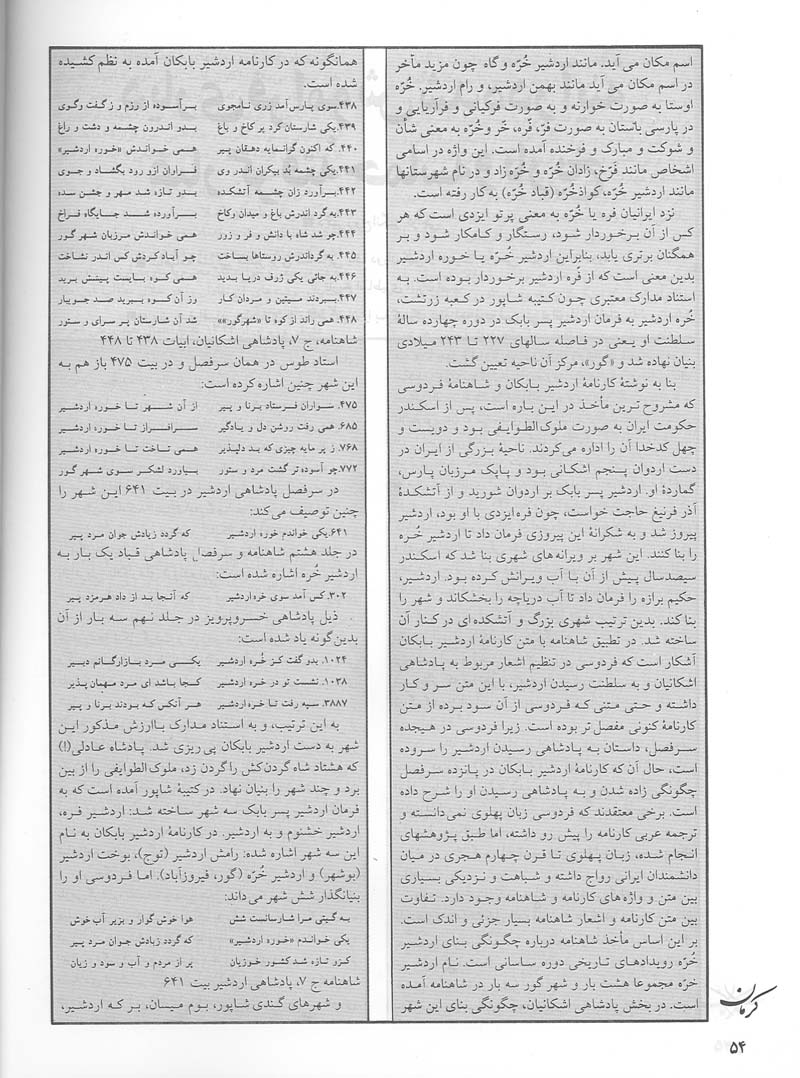 اسم مکان می آید. مانند اردشیر خُرّه و گاه چون مزید مآخر
در اسم مکان می آید مانند بهمن اردشیر، و رام اردشیر. خُرّه
اوستا به صورت خوارنه و به صورت فرکیانی و فرآریایی و
در پارسی باستان به صورت فرّ، فّره، خّر و خُرّه به معنی شأن
و شوکت و مبارک و فرخنده آمده است. این واژه در اسامی
اشخاص مانند فرّخ، زادان خُرّه و خُرّه زاد و در نام شهرستانها
مانند اردشیر خُرّه، کواذخُرّه (قباد خُرّه) به کار رفته است.
نزد ایرانیان فره یا خُرّه به معنی پرتو ایزدی است که هر
کس از آن برخوردار شود، رستگار و کامکار شود و بر
همگنان برتری یابد، بنابراین اردشیر خُرّه یا خوره اردشیر
بدین معنی است که از فُره اردشیر برخوردار بوده است. به
استناد مدارک معتبری چون کتیبه شاپور در کعبه زرتشت،
خُره اردشیر به فرمان اردشیر پسر بابک در دوره چهارده سالهٔ
سلطنت او یعنی در فاصله سالهای ۲۲۷ تا ۲۴۳ میلادی
بنیان نهاده شد و «گور»، مرکز آن ناحیه تعیین گشت.
بنا به نوشتهٔ کارنامهٔ اردشیر بابکان و شاهنامهٔ فردوسی
که مشروح ترین مأخذ در این باره است، پس از اسکندر
حکومت ایران به صورت ملوک الطوایفی بود و دویست و
چهل کدخدا آن را اداره می‌کردند. ناحیهٔ بزرگی از ایران در
دست اردوان پنجم اشکانی بود و پاپک مرزبان پارس،
گماردهٔ او. اردشیر پسر بابک بر اردوان شورید و از آتشکدهٔ
آذر فرنبغ حاجت خواست، چون فره‌ایزدی با او بود، اردشیر
پیروز شد و به شکرانهٔ این پیروزی فرمان داد تا اردشیر خُـره
را بنا کنند. این شهر بر ویرانه‌های شهری بنا شد که اسکندر
سیصدسال پیش از آن با آب ویرانش کرده بود. اردشیر،
حکیم برازه را فرمان داد تا آب دریاچه را بخشکاند و شهر را
بنا کند. بدین ترتیب شهری بزرگ و آتشکده ای در کنار آن
ساخته شد. در تطبیق شاهنامه با متن کارنامهٔ اردشیر بابکان
آشکار است که فردوسی در تنظیم اشعار مربوط به پادشاهی
اشکانیان و به سلطنت رسیدن اردشیر، با این متن سر و کار
داشته و حتی متنی که فردوسی از آن سود برده از متن
کارنامهٔ کنونی مفصل تر بوده است. زیرا فردوسی در هیجده
سرفصل، داستان به پادشاهی رسیدن اردشیر را سروده
است، حال آن که کارنامهٔ اردشیر بابکان در پانزده سرفصل
چگونگی زاده شدن و به پادشاهی رسیدن او را شرح داده
است. برخی معتقدند که فردوسی زبان پهلوی نمی‌دانسته و
ترجمه عربی کارنامه را پیش رو داشته، اما طبق پژوهشهای
انجام شده، زبان پهلوی تا قرن چهارم هجری در میان
دانشمندان ایرانی رواج داشته و شباهت و نزدیکی بسیاری
بین متن و واژه های کارنامه و شاهنامه وجود دارد. تفاوت
بین متن کارنامه و اشعار شاهنامه بسیار جزئی و اندک است.
بر این اساس مأخذ شاهنامه درباره چگونگی بنای اردشیر
خُرّه رویدادهای تاریخی دوره ساسانی است. نام اردشیر
خرّه مجموعا هشت بار و شهر گور سه بار در شاهنامه آمده
است. در بخش پادشاهی اشکانیان، چگونگی بنای این شهر
همانگونه که در کارنامه اردشیر بابکان آمده به نظم کشیده
شده است.
۴۳۸.سوی پارس آمد زری نامجوی برآسوده از رزم و زگفت وگوی
۴۳۹.یکی شارستان کرد پر کاخ و باغ بدو اندرون چشمه و دشت و راغ
۴۴۰. که اکنون گرانمایه دهقان پیر همی خواندش «خوره اردشیر»
۴۴۱.یکی چشمه بُد بیکران اندر وی فراوان ازو رود بگشاد و جوی
۴۴۲.برآورد زان چشمه آتشکده بدو تازه شد مهر و جشن سده
۴۴۳.به گرد اندرش باغ و میدان وکاخ برآورده شد جایگاه فراخ
۴۴۴.چو شد شاه با دانش و فر و زور همی خواندش مرزبان شهر گور
۴۴۵. به گرداندرش روستاها بساخت چو آباد کردش کس اندر نشاخت
۴۴۶.به جائی یکی ژرف دریا بدید همی کوه بایست پیشش برید
۴۴۷.ببردند میتین و مردان کار وز آن کوه ببرید صد جویبار
۴۴۸. همی راند از کوه تا «شهرگور»» شد آن شارستان پر سرای و ستور
شاهنامه، ج ۷، پادشاهی اشکانیان، ابیات ۴۳۸ تا ۴۴۸
استاد طوس در همان سرفصل و در بیت ۴۷۵ باز هم به
این شهر چنین اشاره کرده است:
۴۷۵. سواران فرستاد برنا و پیر از آن شهر تا خوره اردشیر
۶۸۵. همی رفت روشن دل و یادگیر سرافراز تا خوره اردشیر
۷۶۸. ز پر مایه چیزی که بد دلپذیر همی تاخت تا خوره اردشیر
۷۷۲.چو آسوده تر گشت مرد و ستور بیاورد لشکر سوی شهر گور
در سرفصل پادشاهی اردشیر در بیت ۶۴۱ این شهر را
چنین توصیف می‌کند:
۶۴۱.یکی خواندم خوره اردشیر که گردد زبادش جوان مرد پیر
در جلد هشتم شاهنامه و سرفصل پادشاهی قباد یک بار به
اردشیر خُره اشاره شده است:
۳۰۲.کس آمد سوی خره اردشیر که آنجا بد از داد هرمزد پیر
ذیل پادشاهی خسروپرویز در جلد نهم سه بار از آن
بدین‌گونه یاد شده است:
۱۰۲۴. بدو گفت کز خُره اردشیر یکی مرد بازارگانم دبیر
۱۰۳۸. نشست تو در خره اردشیر کجا باشد ای مرد مهمان پذیر
۳۸۸۷. سپه رفت تا خره اردشیر هر آنکس که بودند برنا و پیر
به این ترتیب، و به استناد مدارک باارزش مذکور این
شهر به دست اردشیر بابکان پی ریزی شد. پادشاه عادلی(!)
که هشتاد شاه گردن‌کش را گردن زد، ملوک الطوایفی را از بین
برد و چند شهر را بنیان نهاد. در کتیبهٔ شاپور آمده است که به
فرمان اردشیر پسر بابک سه شهر ساخته شد: اردشیر فره،
اردشیر خشنوم و به اردشیر. در کارنامهٔ اردشیر بابکان به نام
این سه شهر اشاره شده: رامش اردشیر (توج)، بوخت اردشیر
(بوشهر) و اردشیر خُرّه (گور، فیروزآباد). اما فردوسی او را
بنیانگذار شش شهر می‌داند:
به گیتی مرا شارسانست شش هوا خوش گوار و بزیر آب خوش
یکی خواندم «خوره اردشیر» که گردد زبادش جوان مرد پیر
کزو تازه شد کشور خوزیان پر از مردم و آب و سود و زیان
شاهنامه ج ۷، پادشاهی اردشیر بیت ۶۴۱
و شهرهای گندی شاپور، بوم میسان، بر که اردشیر،
کرمان
۵۴